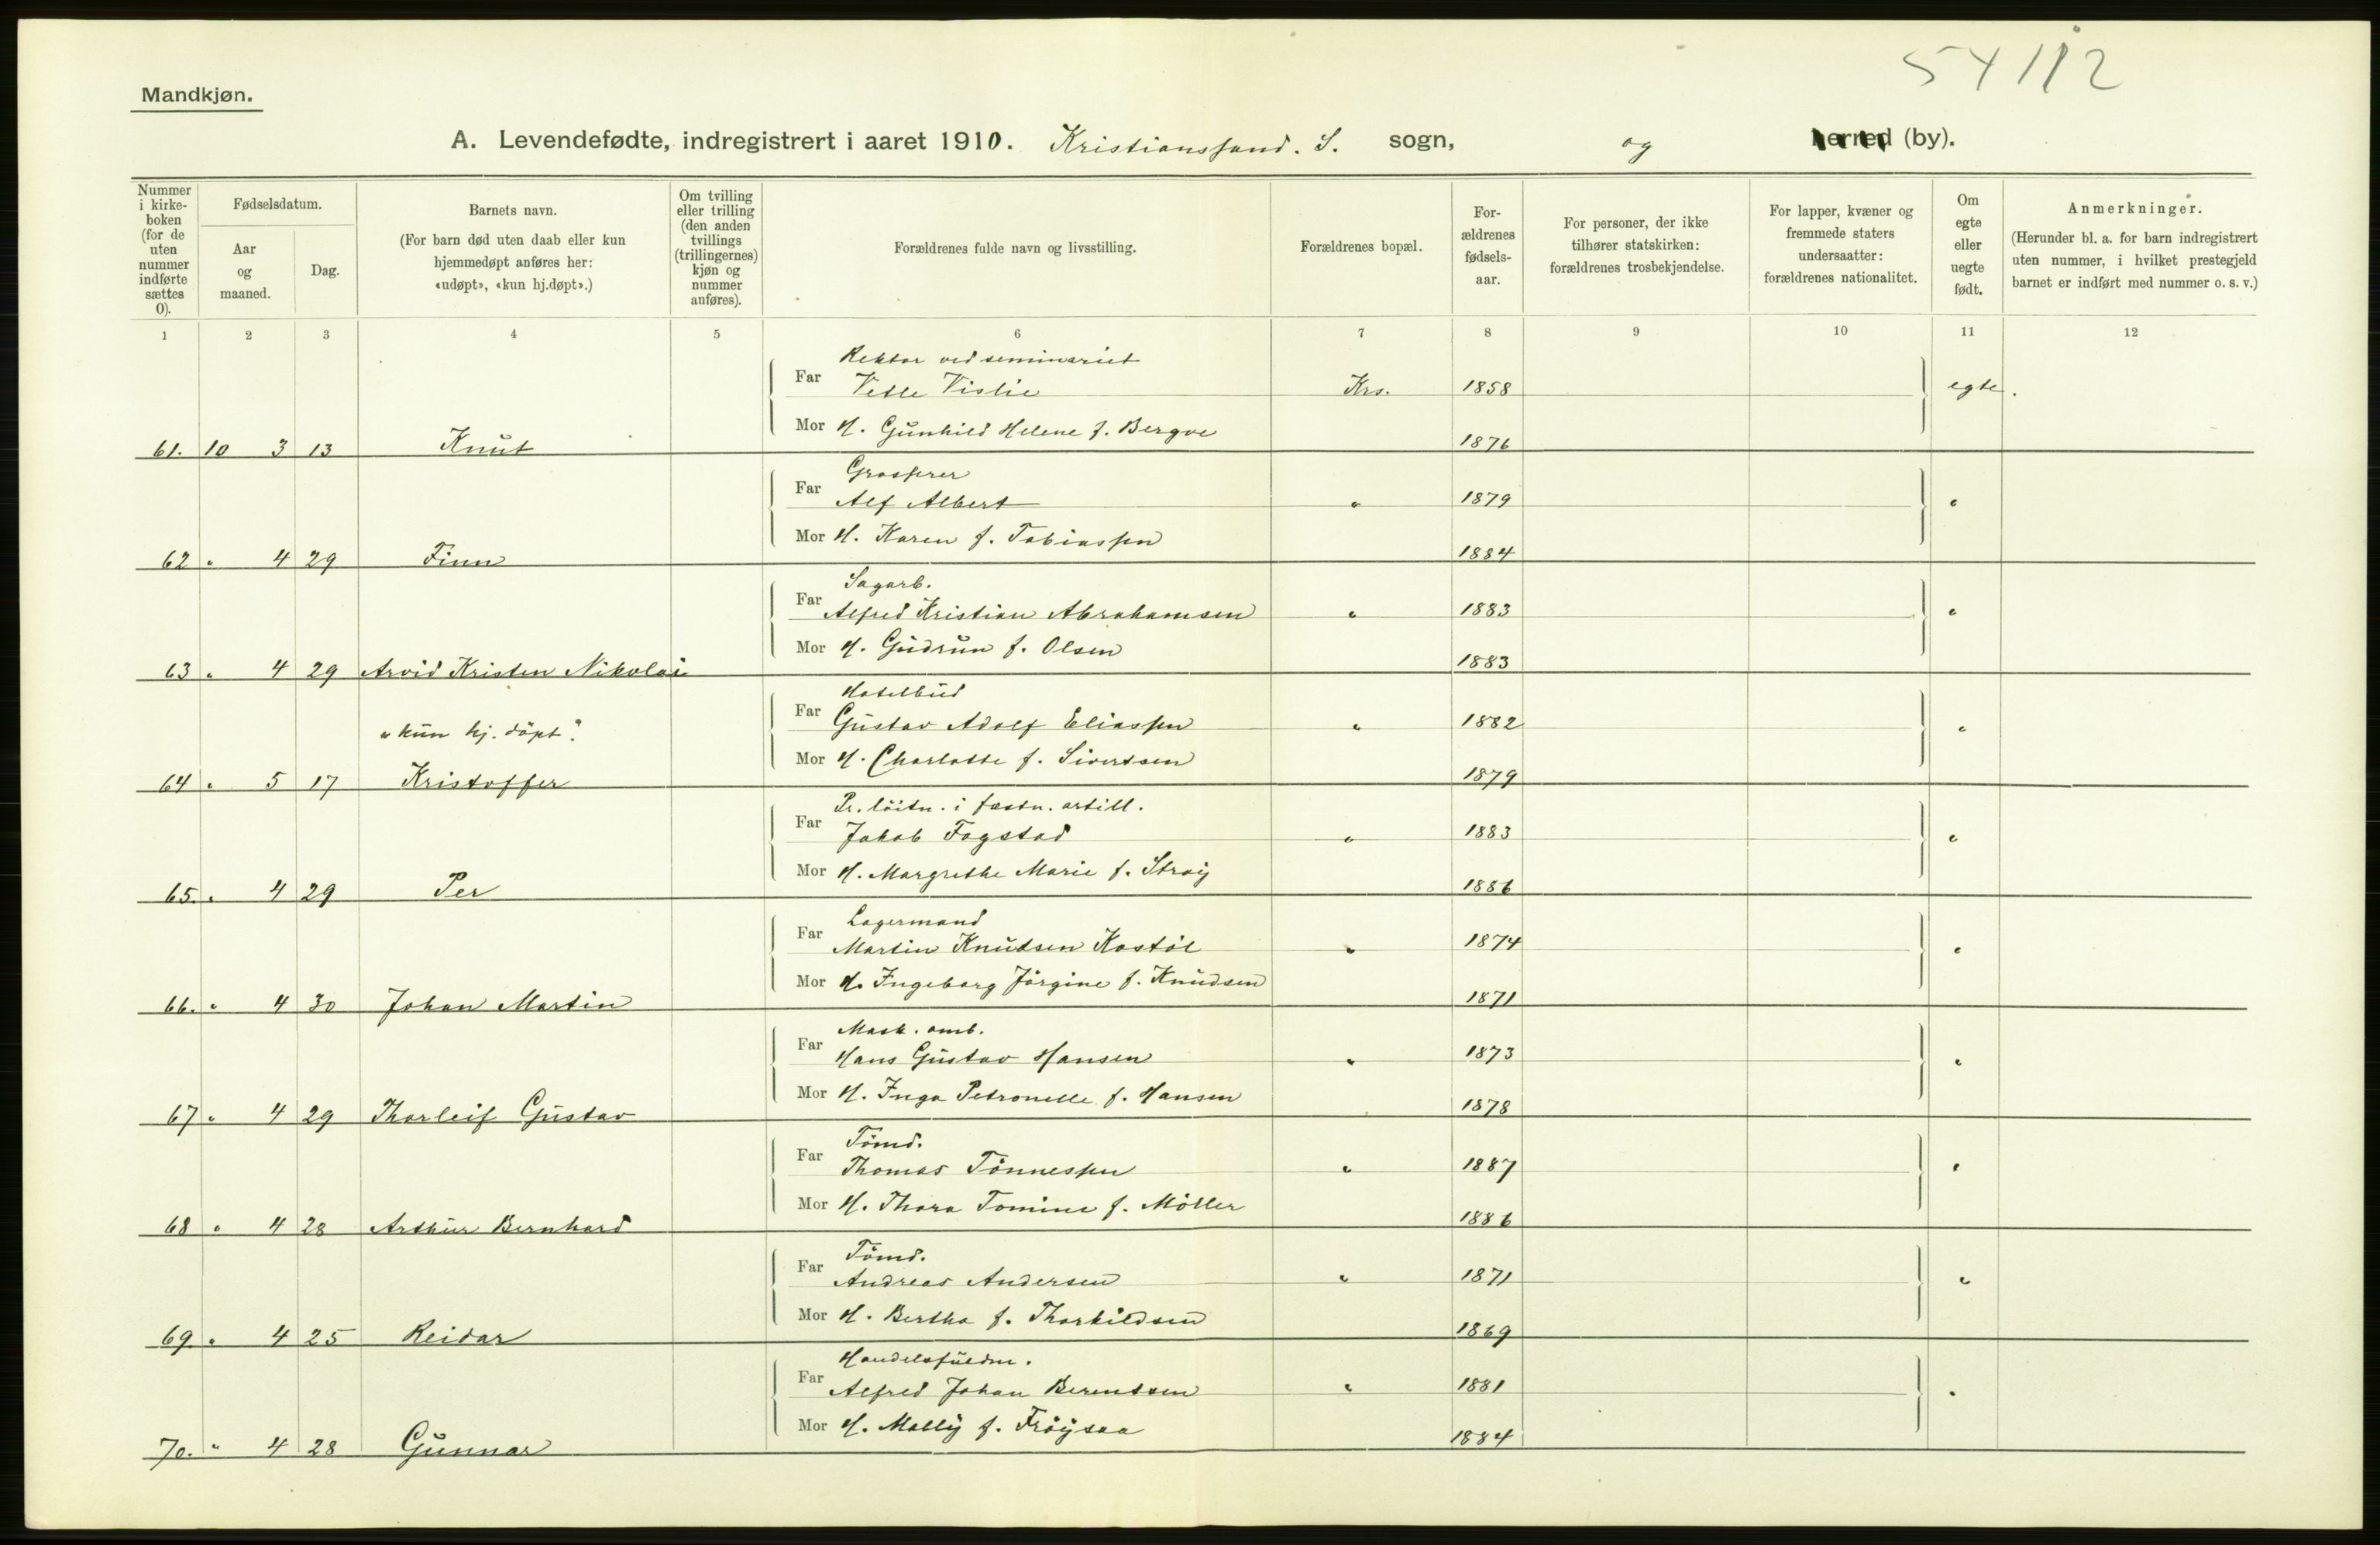 54112
Mandkjøn.
A. Levendefødte, indregistrert i aaret 1910. Kristianssand. S. sogn, og herred (by).
Nummer i kirke-boken (for de uten nummer indførte sættes 0).
Fødselsdatum.
Aar og maaned.
Dag.
Barnets navn.
(For barn død uten daab eller kun hjemmedøpt anføres her: «udøpt», «kun hj.døpt».)
Om tvilling eller trilling (den anden tvillings (trillingernes) kjøn og nummer anføres).
Forældrenes fulde navn og livsstilling.
Forældrenes bopæl.
For-ældrenes fødsels-aar.
For personer, der ikke tilhører statskirken: forældrenes trosbekjendelse.
For lapper, kvæner og fremmede staters undersaatter: forældrenes nationalitet.
Om egte eller uegte født.
Anmerkninger.
(Herunder bl. a. for barn indregistrert uten nummer, i hvilket prestegjeld barnet er indført med nummer o. s. v.)
1 2 3 4 5 6 7 8 9 10 11 12
Rektor ved seminariet
Far Vetle Vislie Krs. 1858 egte.
Mor H. Gunhild Helene f. Bergve 1876
61. 10 3 13 Knut
Grosserer
Far Alf Albert " 1879 "
Mor H. Karen f. Tobiassen 1884
62 " 4 29 Finn
Sagarb.
Far Alfred Kristian Abrahamsen " 1883 "
Mor H. Gudrun f. Olsen 1883
63 " 4 29 Arvid Kristen Nikolai
Hotelbud
Far Gustav Adolf Eliassen " 1882 "
"kun hj. døpt"
Mor H. Charlotte f. Sivertsen 1879
64 " 5 17 Kristoffer
Pr. løitn. i fæstn. artill.
Far Jakob Fogstad " 1883 "
Mor H. Margrethe Marie f. Stray 1886
65. " 4 29 Per
Lagermand
Far Martin Knudsen Kostøl " 1874 "
Mor H. Ingeborg Jørgine f. Knudsen 1871
66. " 4 30 Johan Martin
Mask. amb.
Far Hans Gustav Hansen " 1873 "
Mor H. Inga Petronelle f. Hansen 1878
67 " 4 29 Thorleif Gustav
Tømd.
Far Thomas Tønnessen " 1887 "
Mor H. Thora Tomine f. Møller 1886
68 " 4 28 Arthur Bernhard
Tømd.
Far Andreas Andersen " 1871 "
Mor H. Bertha f. Thorkildsen 1869
69. " 4 25 Reidar
Handelsfuldm.
Far Alfred Johan Berentsen " 1881 "
Mor H. Molly f. Frøysaa 1884
70. " 4 28 Gunnar